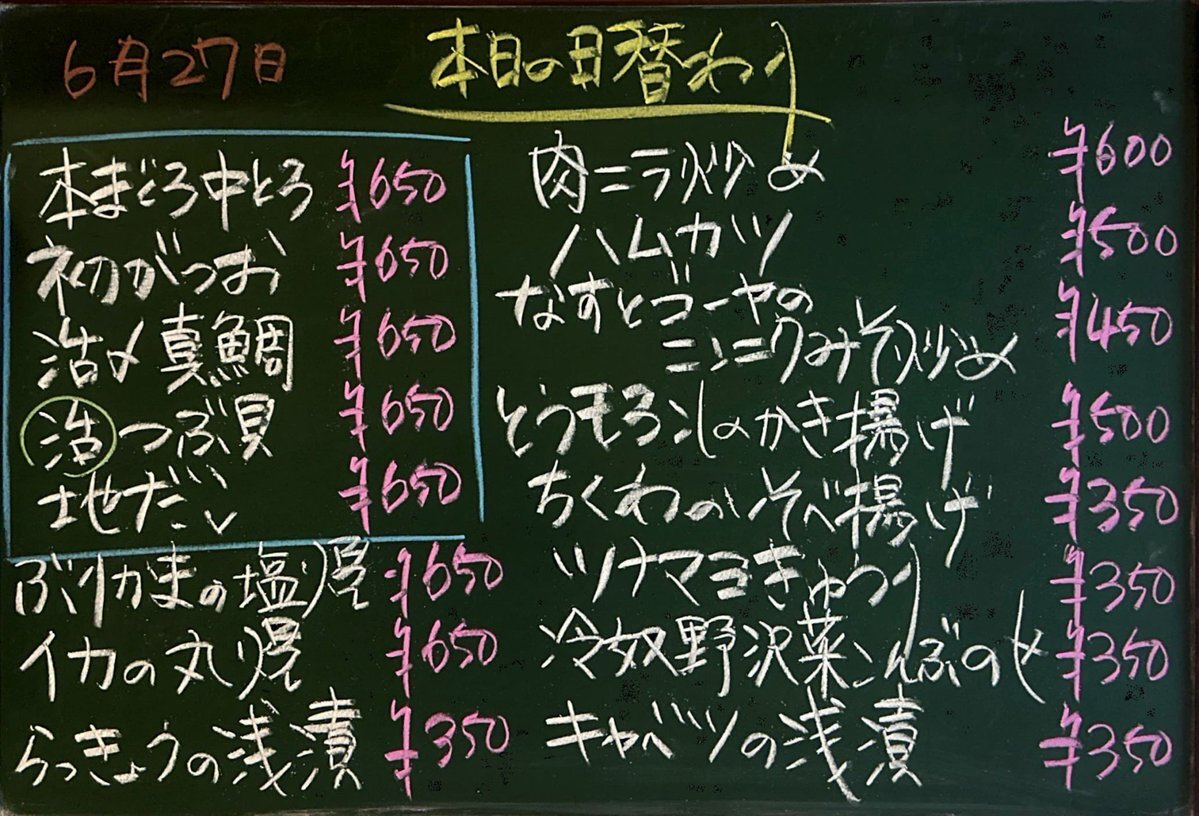 6月27日
本日の日替わり
本まぐろ中とろ ¥650
初がつお ¥650
活〆真鯛 ¥650
活つぶ貝 ¥650
地だこ ¥650
ぶりかまの塩焼 ¥650
イカの丸焼 ¥650
らっきょうの浅漬 ¥350
肉ニラ炒め ¥600
ハムカツ ¥500
なすとゴーヤの
ニンニクみそ炒め ¥450
とうモろコしのかき揚げ ¥500
ちくわのいそべ揚げ ¥350
ツナマヨきゅうり ¥350
冷奴野沢菜こんぶのせ ¥350
キャベツの浅漬 ¥350